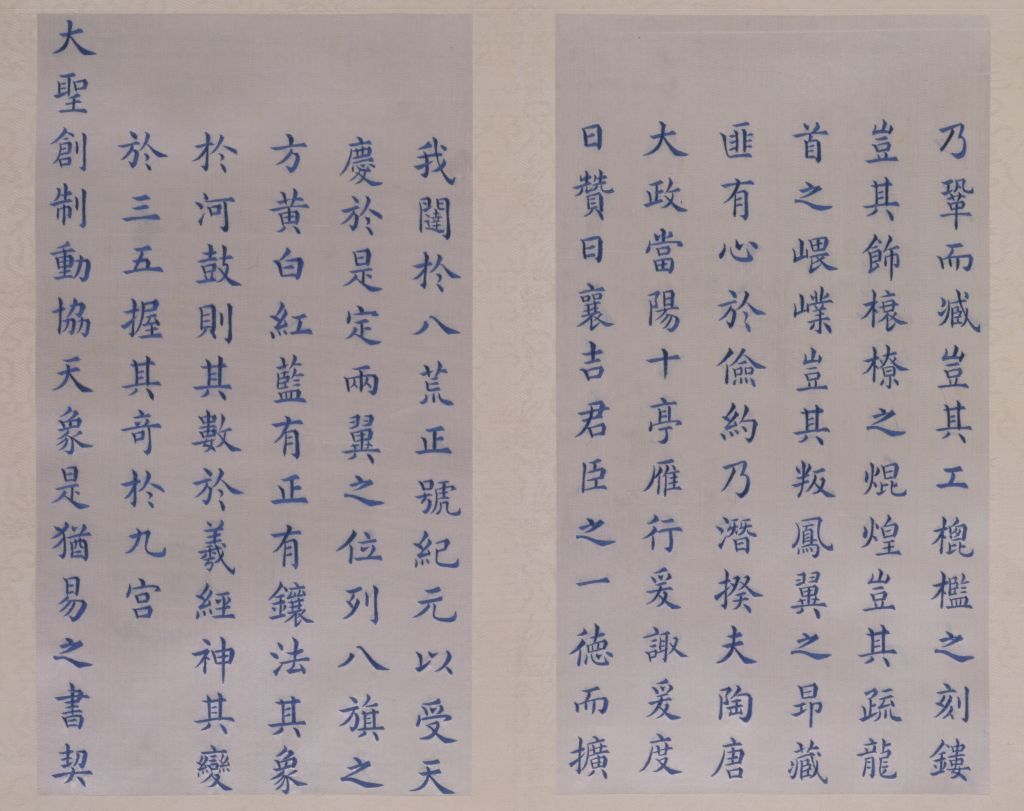 乃鞏而臧豈其工榥檻之刻鏤
豈其飾榱橑之焜煌豈其疏龍
首之嵔㠎豈其叛鳳翼之昻藏
匪有心於儉約乃潛揆夫陶唐
大政當陽十亭雁行爰諏爰度
曰贊曰襄吉君臣之一德而擴
我闥於八荒正號紀元以受天
慶於是定兩翼之位列八旗之
方黄白紅藍有正有鑲法其象
於河鼓則其數於羲經神其變
於三五握其奇於九宫
大聖創制動協天象是猶易之書契